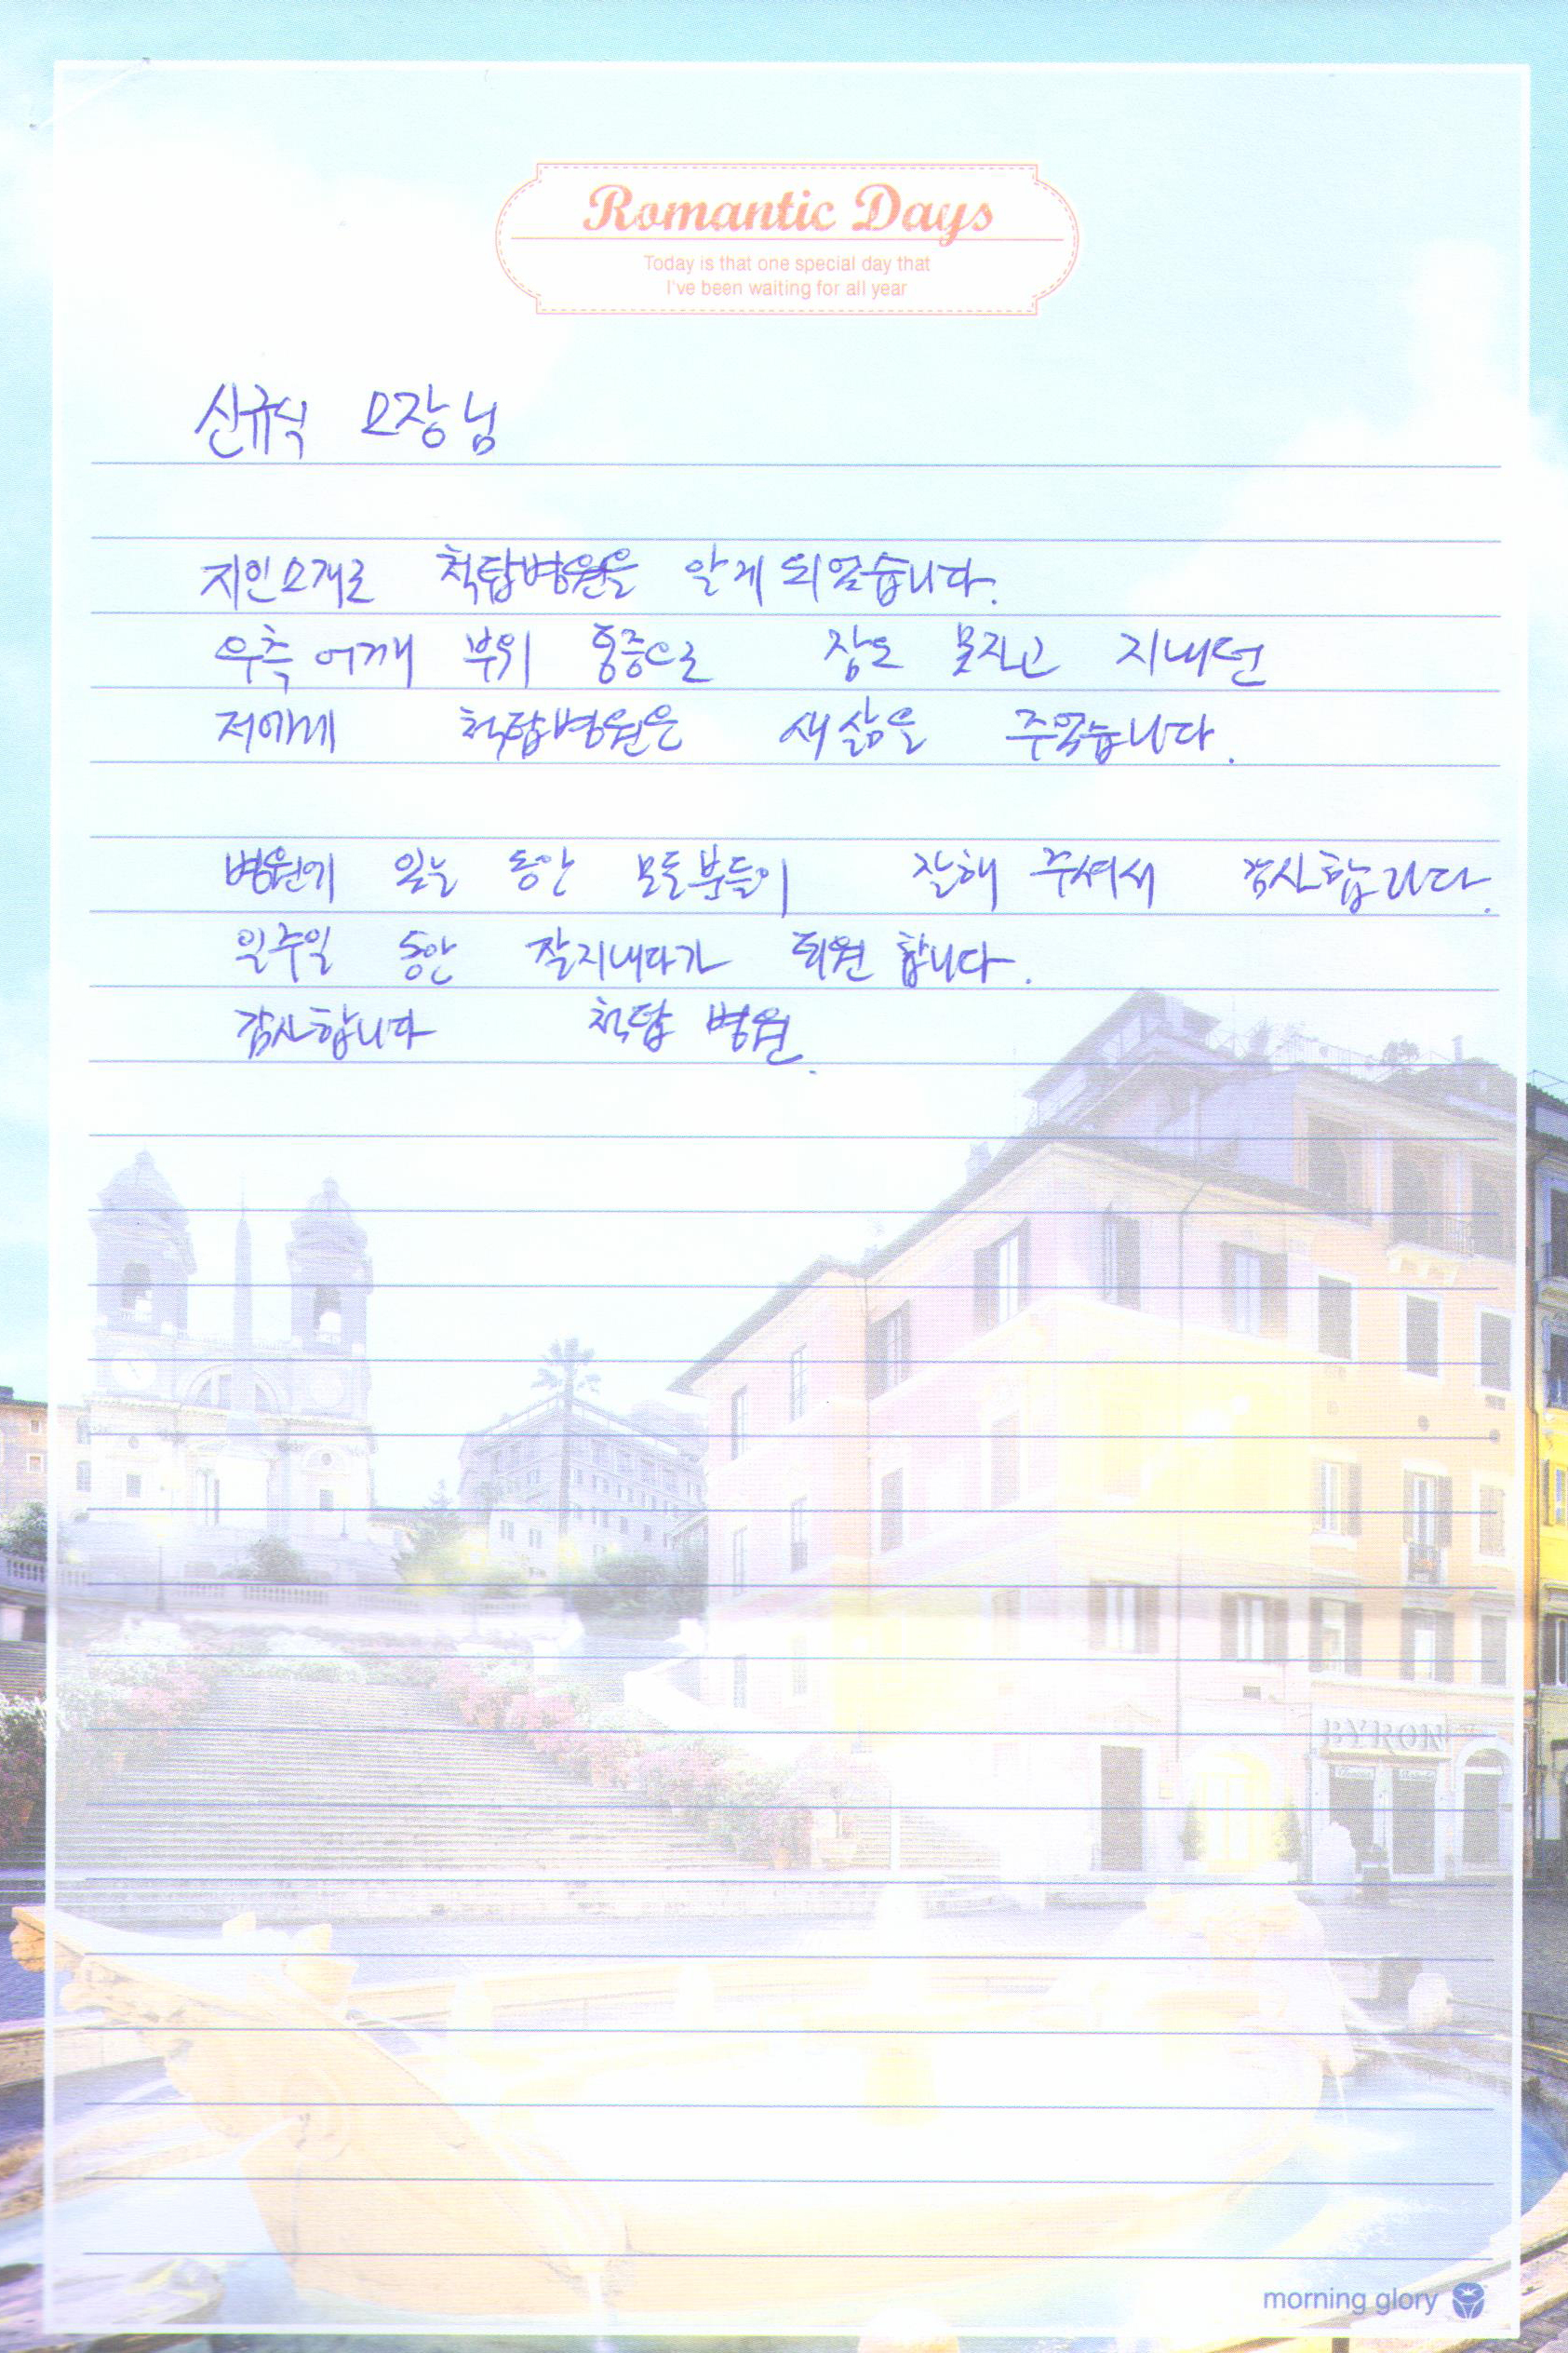 Romantic Days
Today is that one special day that
I've been waiting for all year
신규식 원장님
지인소개로 척탑병원을 알게 되었습니다.
우측 어깨 부위 통증으로 잠도 못자고 지내던
저에게 척탑병원은 새삶을 주었습니다.
병원에 있는 동안 모든분들이 잘해 주셔서 감사합니다.
일주일 동안 잘지내다가 퇴원 합니다.
감사합니다 척탑 병원.
BYRON
morning glory